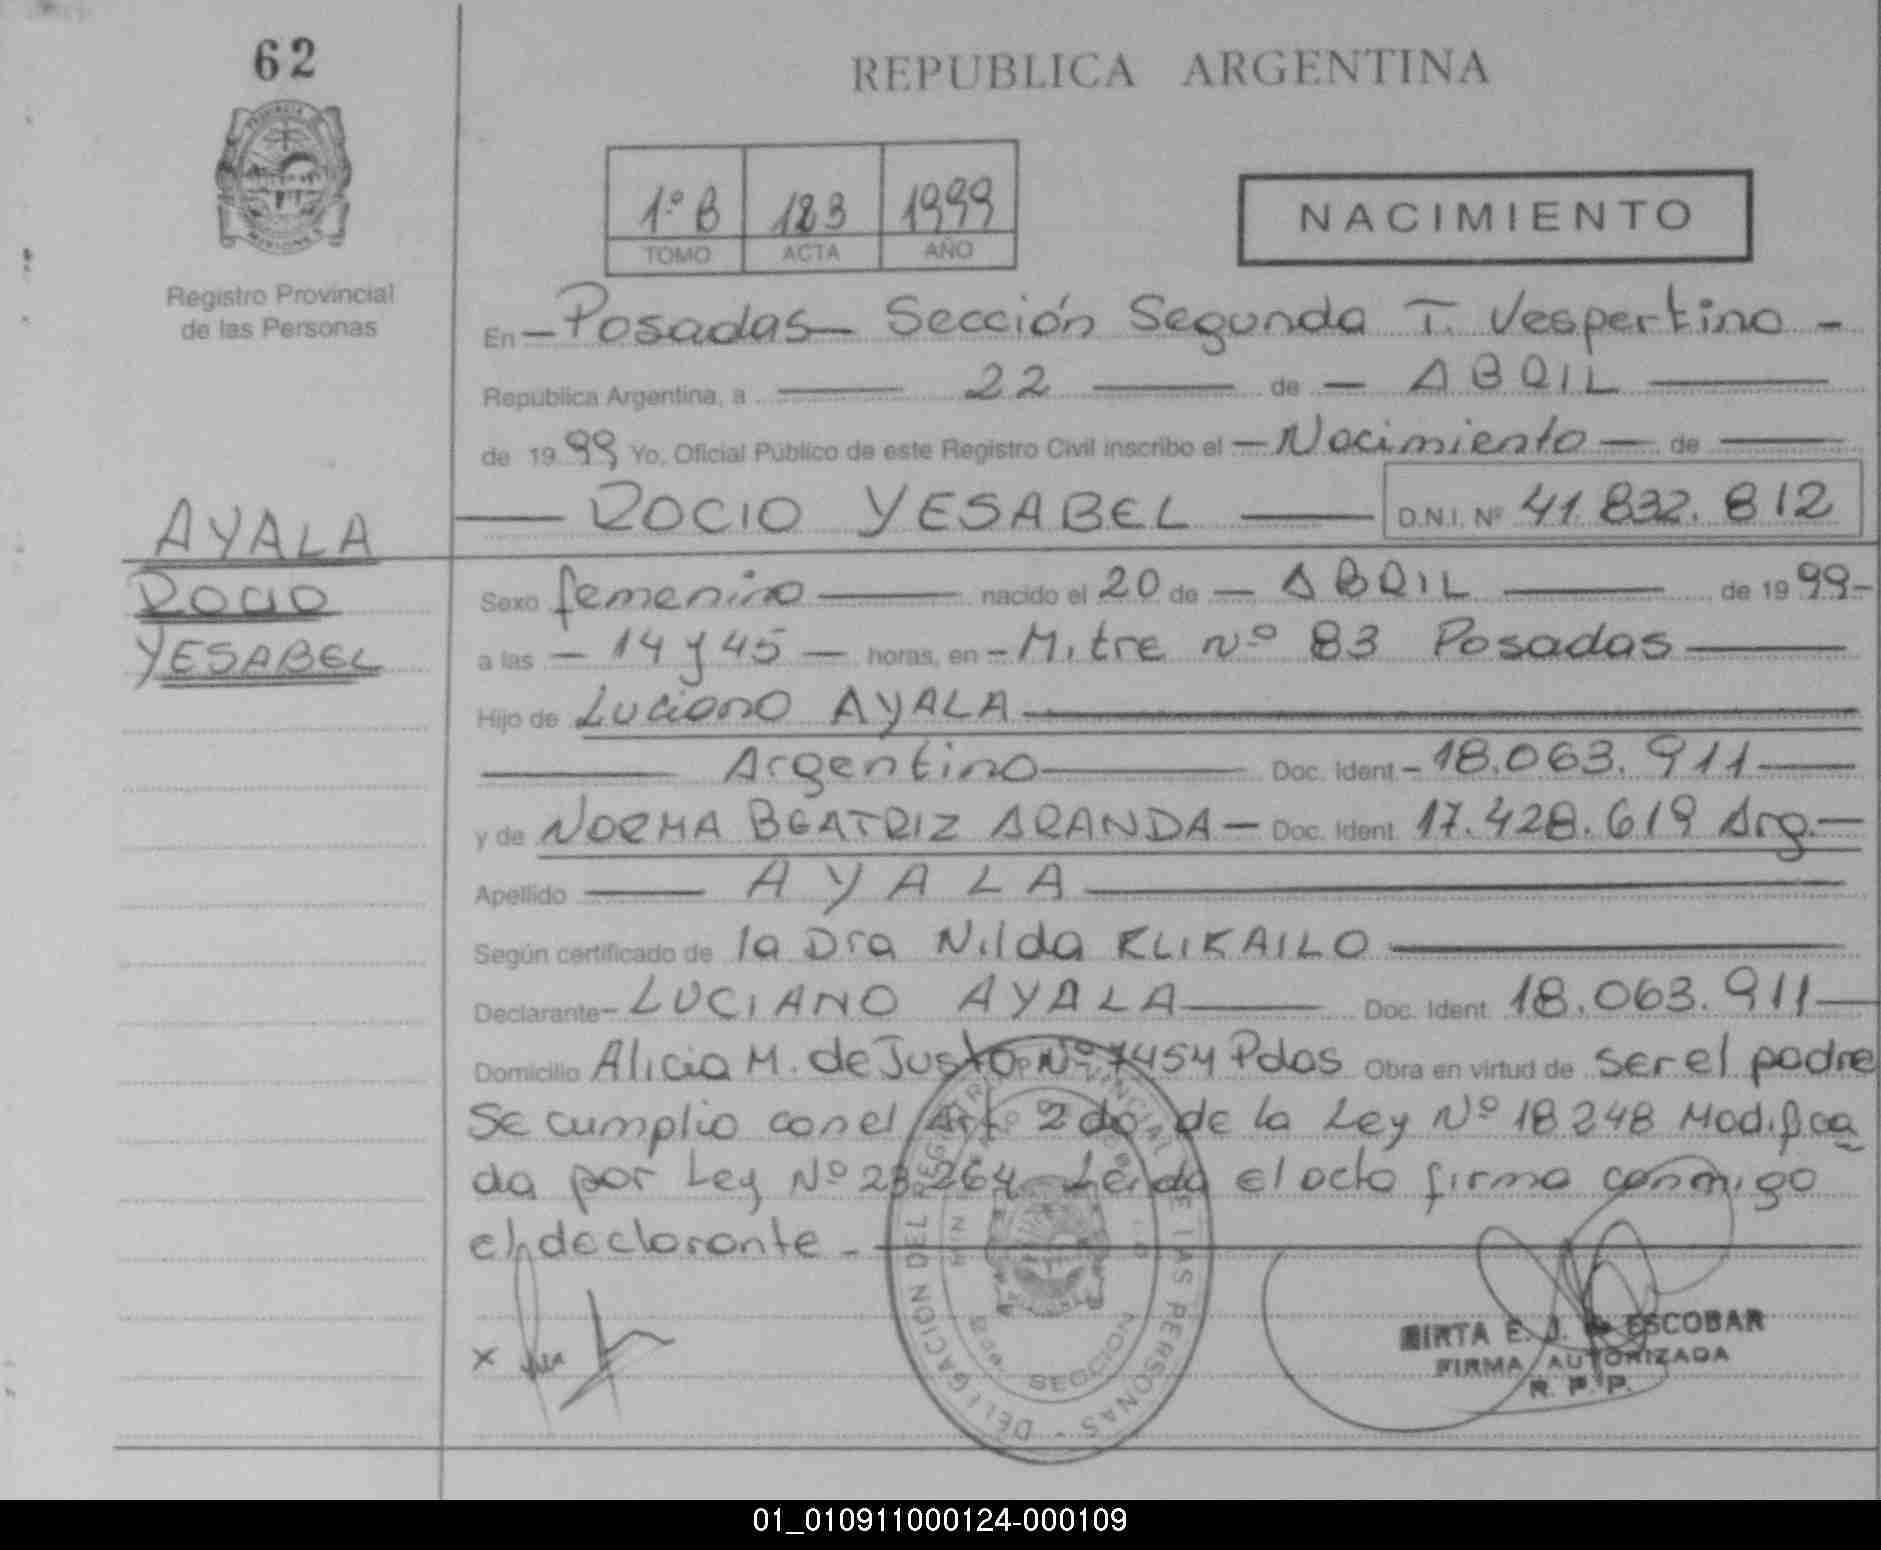 62
REPUBLICA ARGENTINA
1º B 123 1999
TOMO ACTA AÑO
NACIMIENTO
Registro Provincial
de las Personas
En - Posadas - Sección Segunda T. Vespertino -
República Argentina, a 22 de - ABRIL
de 1999 Yo, Oficial Público de este Registro Civil inscribo el - Nacimiento - de
ROCIO YESABEL D.N.I. Nº 41.832.812
AYALA
ROCIO
YESABEL
Sexo femenino nacido el 20 de - ABRIL de 1999-
a las - 14 y 45 - horas, en - Mitre nº 83 Posadas
Hijo de Luciano AYALA
Argentino Doc. Ident - 18.063.911
y de NORMA BEATRIZ ARANDA - Doc. Ident 17.428.619 Arg.-
Apellido AYALA
Según certificado de la Dra Nilda KLIKAILO
Declarante - LUCIANO AYALA Doc. Ident. 18.063.911
Domicilio Alicia M. de Justo Nº 7454 Pdas Obra en virtud de ser el padre
Se cumplio con el Art 2do de la Ley Nº 18248 Modifica
da por Ley Nº 23264 Leida el acta firma conmigo
el declarante -
DELEGACION DEL REGISTRO PROVINCIAL DE LAS PERSONAS
SECCION
x
MIRTA E. J. de ESCOBAR
FIRMA AUTORIZADA
R. P. P.
01_010911000124-000109